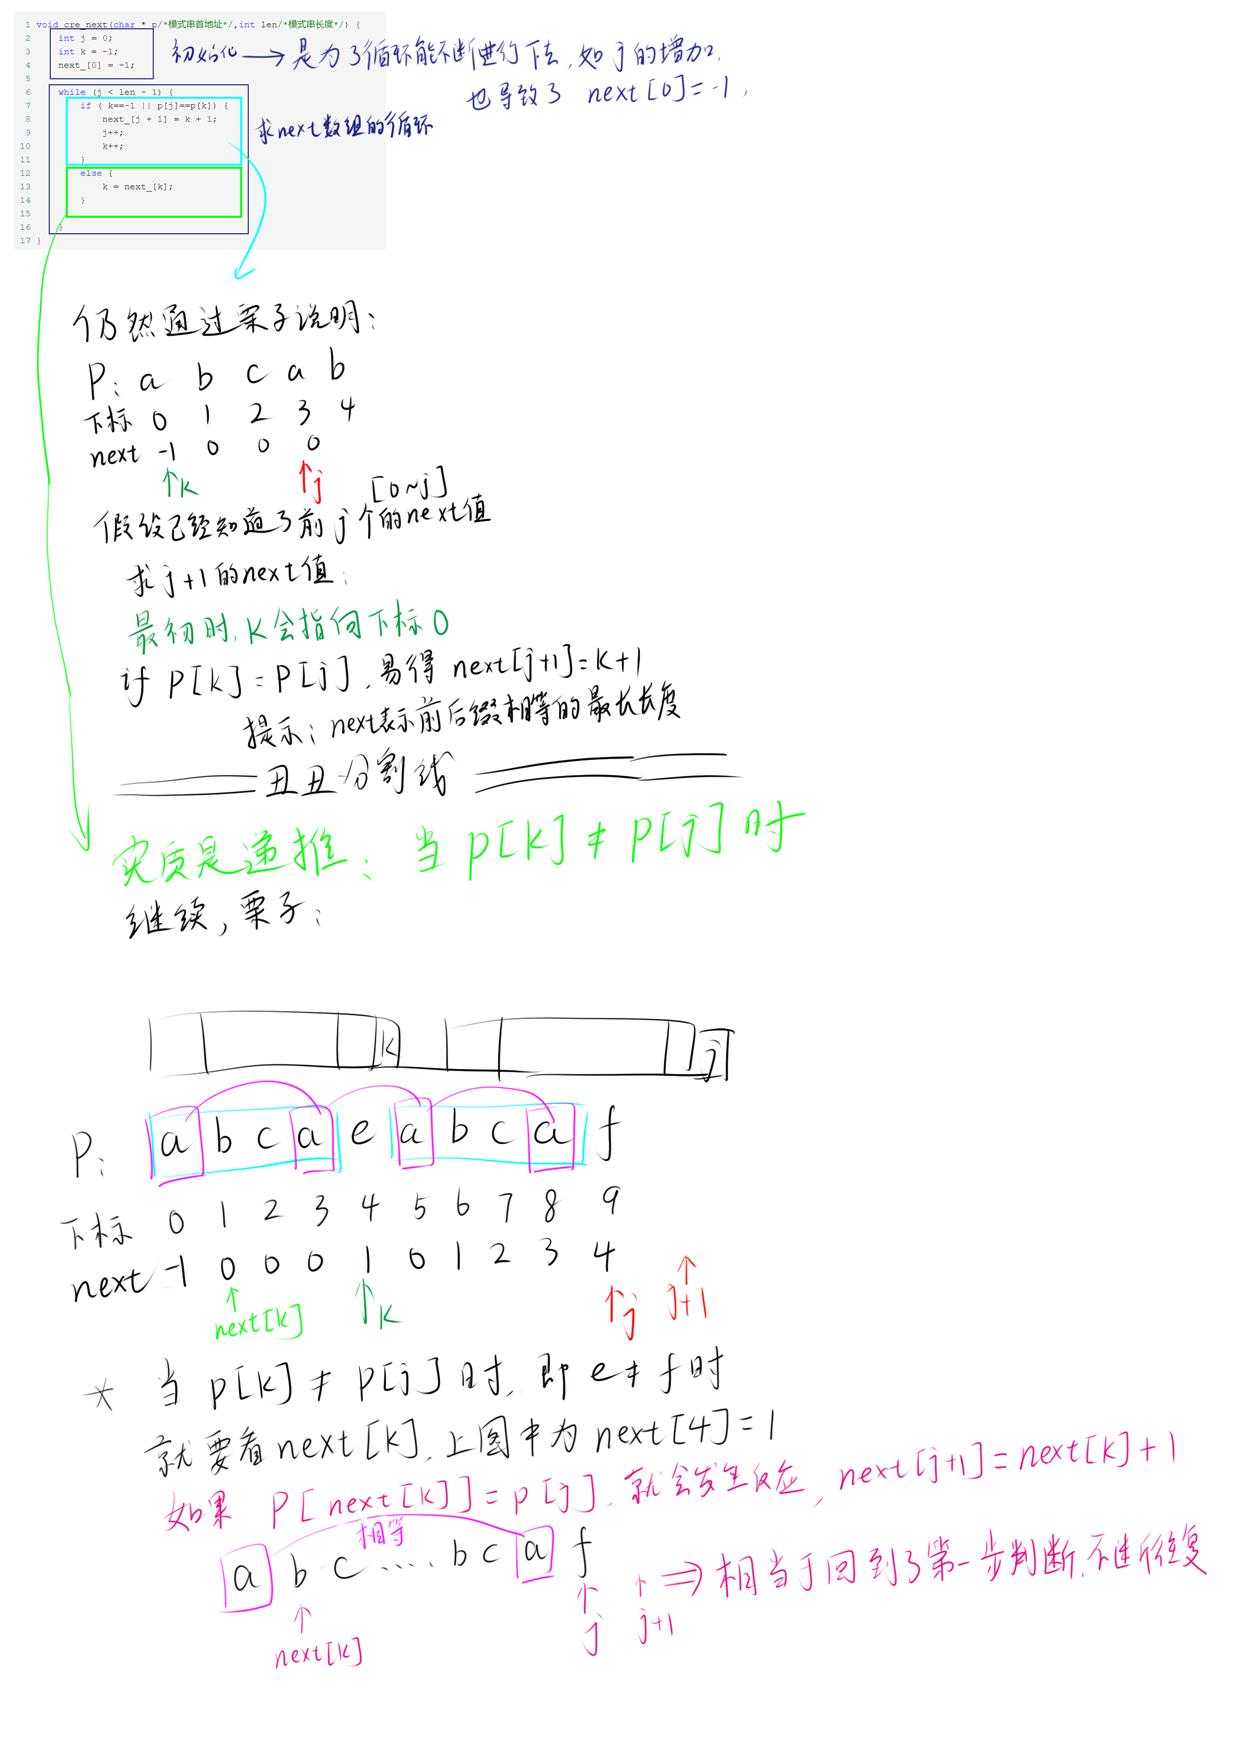 1 void cre_next(char * p/*模式串首地址*/,int len/*模式串长度*/) {
2 int j = 0;
3 int k = -1;
4 next_[0] = -1;
5
6 while (j < len - 1) {
7 if ( k==-1 || p[j]==p[k]) {
8 next_[j + 1] = k + 1;
9 j++;
10 k++;
11 }
12 else {
13 k = next_[k];
14 }
15
16 }
17 }
初始化 → 是为了循环能不断进行下去,如j的增加,
也导致了 next[0]=-1,
求next数组的循环
仍然通过栗子说明:
P: a b c a b
下标 0 1 2 3 4
next -1 0 0 0
↑k ↑j [0~j]
假设已经知道了前j个的next值
求j+1的next值:
最初时,k会指向下标0
if P[k]=P[j],易得 next[j+1]=k+1
提示: next表示前后缀相等的最长长度
丑丑分割线
实质是递推: 当 p[k] ≠ p[j] 时
继续,栗子:
k j
P: a b c a e a b c a f
下标 0 1 2 3 4 5 6 7 8 9
next -1 0 0 0 1 0 1 2 3 4
↑ next[k] ↑k ↑j ↑j+1
* 当 p[k] ≠ p[j] 时,即 e≠f时
就要看next[k],上图中为next[4]=1
如果 P[next[k]]=p[j],就会发生反应,next[j+1]=next[k]+1
相等
a b c .... b c a f
↑ next[k] ↑ j ↑ j+1 ⇒ 相当于回到了第一步判断,不断往复